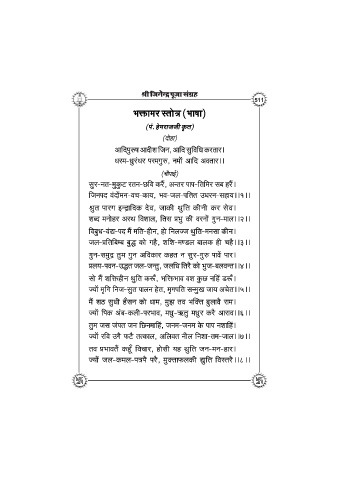 श्री जिनेन्द्र पूजा संग्रह
511
भक्तामर स्तोत्र (भाषा)
(पं. हेमराजजी कृत)
(दोहा)
आदिपुरुष आदीश जिन, आदि सुविधि करतार।
धरम-धुरंधर परमगुरु, नमों आदि अवतार।।
(चौपाई)
सुर-नत-मुकुट रतन-छवि करैं, अन्तर पाप-तिमिर सब हरैं।
जिनपद वंदौंमन-वच-काय, भव-जल-पतित उधरन-सहाय।।१।।
श्रुत पारग इन्द्रादिक देव, जाकी थुति कीनी कर सेव।
शब्द मनोहर अरथ विशाल, तिस प्रभु की वरनों गुन-माल।।२।।
विबुध-वंद्य-पद मैं मति-हीन, हो निलज्ज थुति-मनसा कीन।
जल-प्रतिबिम्ब बुद्ध को गहै, शशि-मण्डल बालक ही चहै।।३।।
गुन-समुद्र तुम गुन अविकार कहत न सुर-गुरु पावें पार।
प्रलय-पवन-उद्धत जल-जन्तु, जलधि तिरै को भुज-बलवन्त।।४।।
सो मैं शक्तिहीन थुति करूँ, भक्तिभाव वश कुछ नहिं डरूँ।
ज्यों मृगि निज-सुत पालन हेत, मृगपति सन्मुख जाय अचेत।।५।।
मैं शठ सुधी हँसन को धाम, मुझ तव भक्ति बुलावै राम।
ज्यों पिक अंब-कली-परभाव, मधु-ऋतु मधुर करै आराव।।६।।
तुम जस जंपत जन छिनमाहिं, जनम-जनम के पाप नशाहिं।
ज्यों रवि उगै फटै तत्काल, अलिवत नील निशा-तम-जाल।।७।।
तव प्रभावतैं कहूँ विचार, होसी यह थुति जन-मन-हार।
ज्यों जल-कमल-पत्रपै परै, मुक्ताफलकी द्युति विस्तरै।।८।।